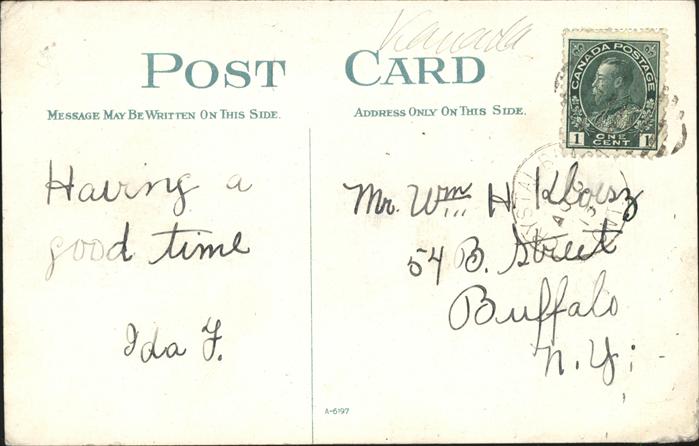 Kanada
POST CARD
MESSAGE MAY BE WRITTEN ON THIS SIDE.
ADDRESS ONLY ON THIS SIDE.
CANADA POSTAGE
1 ONE CENT 1
Having a
good time
Ida F.
Mr. Wm H.
54 B. Street
Buffalo
N.Y.
A-6197